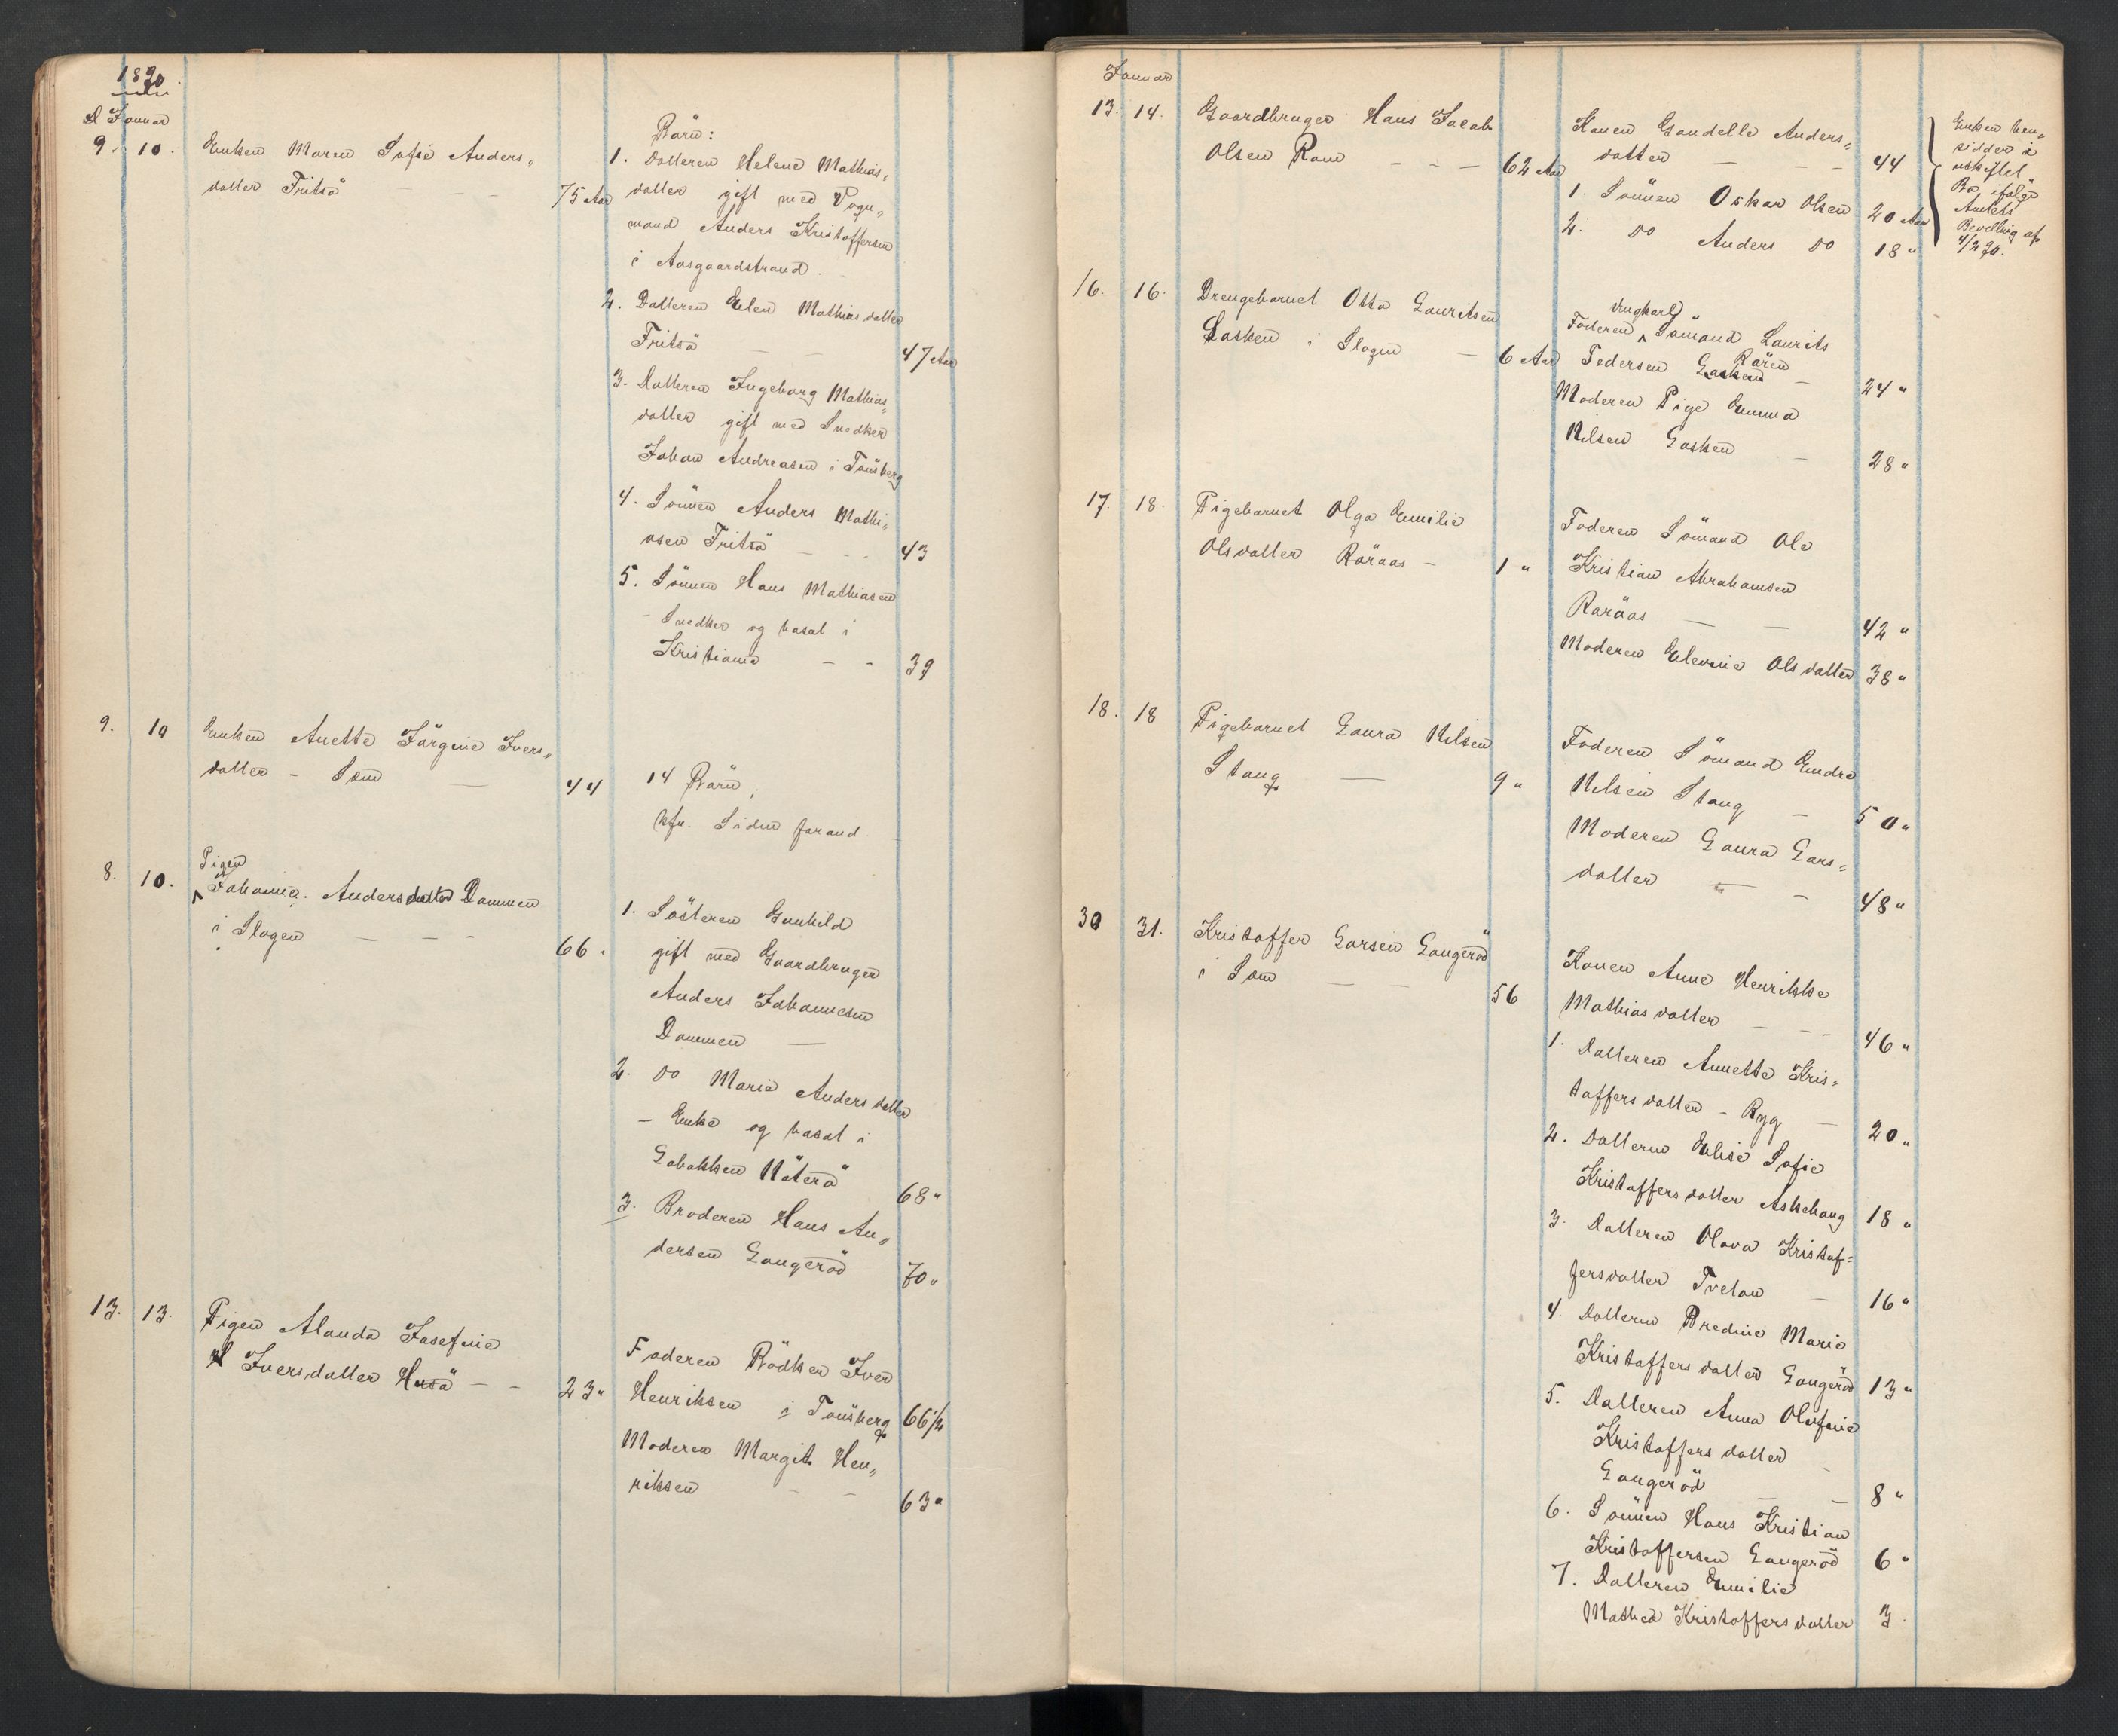 1890
D Januar
9. 10. Enken Maren Sofie Anders-
datter Fritsö — — — 75 Aar
Börn:
1. Datteren Helene Mathias-
datter gift med Vogn-
mand Anders Kristoffersen
i Aasgaardstrand.
2. Datteren Elen Mathiasdatter
Fritsö — — 47 Aar
3. Datteren Ingeborg Mathias-
datter gift med Snedker
Johan Andreasen i Tönsberg
4. Sönnen Anders Mathi-
asen Fritsö — — 43
5. Sönnen Hans Mathiasen
- Snedker og bosat i
Kristiania — — 39
9. 10 Enken Anette Jörgine Ivers-
datter - Sem — 44
14 Börn;
kfr. Siden foran
8. 10. Pigen
Johanna. Andersdatter Dammen
i Slagen — — — 66.
1. Sösteren Gunhild
gift med Gaardbruger
Anders Johannesen
Dammen —
2. Do Marie Andersdatter
- Enke og bosat i
Nöterö 68 "
3. Broderen Hans An-
dersen Gaugeröd 70 "
13. 13. Pigen Alanda Josefine
Iversdatter Husö — — 23 "
Faderen Bödker Iver
Henriksen i Tönsberg 66 1/2
Moderen Margit Hen-
riksen — — 63 "
Januar
13. 14. Gaardbruger Hans Jacob
Olsen Ram — — — 62 Aar
Konen Gundelle Anders-
datter — — — 44
1. Sönnen Oskar Olsen 20 Aar
2. Do Anders Do 18 "
Enken hen-
sidder i
uskiftet
Bo ifölge
Amtets
Bevilling af
4/2 90.
16. 16. Drengebarnet Otto Lauritsen
Lasken i Slagen — 6 Aar
Ungkarl
Faderen Sömand Laurits
Rören
Pedersen Lasken — 24 "
Moderen Pige Emma
Nilsen Lasken — 28 "
17. 18. Pigebarnet Olga Emilie
Olsdatter Röraas — 1 "
Faderen Sömand Ole
Kristian Abrahamsen
Röraas — — 42 "
Moderen Elevine Olsdatter 38 "
18. 18 Pigebarnet Laura Nilsen
Stang — 9 "
Faderen Sömand Endre
Nilsen Stang — 50 "
Moderen Laura Lars-
datter — — 48 "
30 31. Kristoffer Larsen Gaugeröd
i Sem — — 56
Konen Anne Henrikke
Mathiasdatter — — — 46 "
1. Datteren Annette Kris-
toffersdatter - Ryg — 20 "
2. Datteren Elise Sofie
Kristoffersdatter Askehaug 18 "
3. Datteren Olava Kristof-
fersdatter Tvetan — 16 "
4. Datteren Bredine Marie
Kristoffersdatter Gaugeröd 13 "
5. Datteren Anna Olufine
Kristoffersdatter
Gaugeröd — — 8 "
6. Sönnen Hans Kristian
Kristoffersen Gaugeröd 6 "
7. Datteren Emilie
Mathea Kristoffersdatter 3.